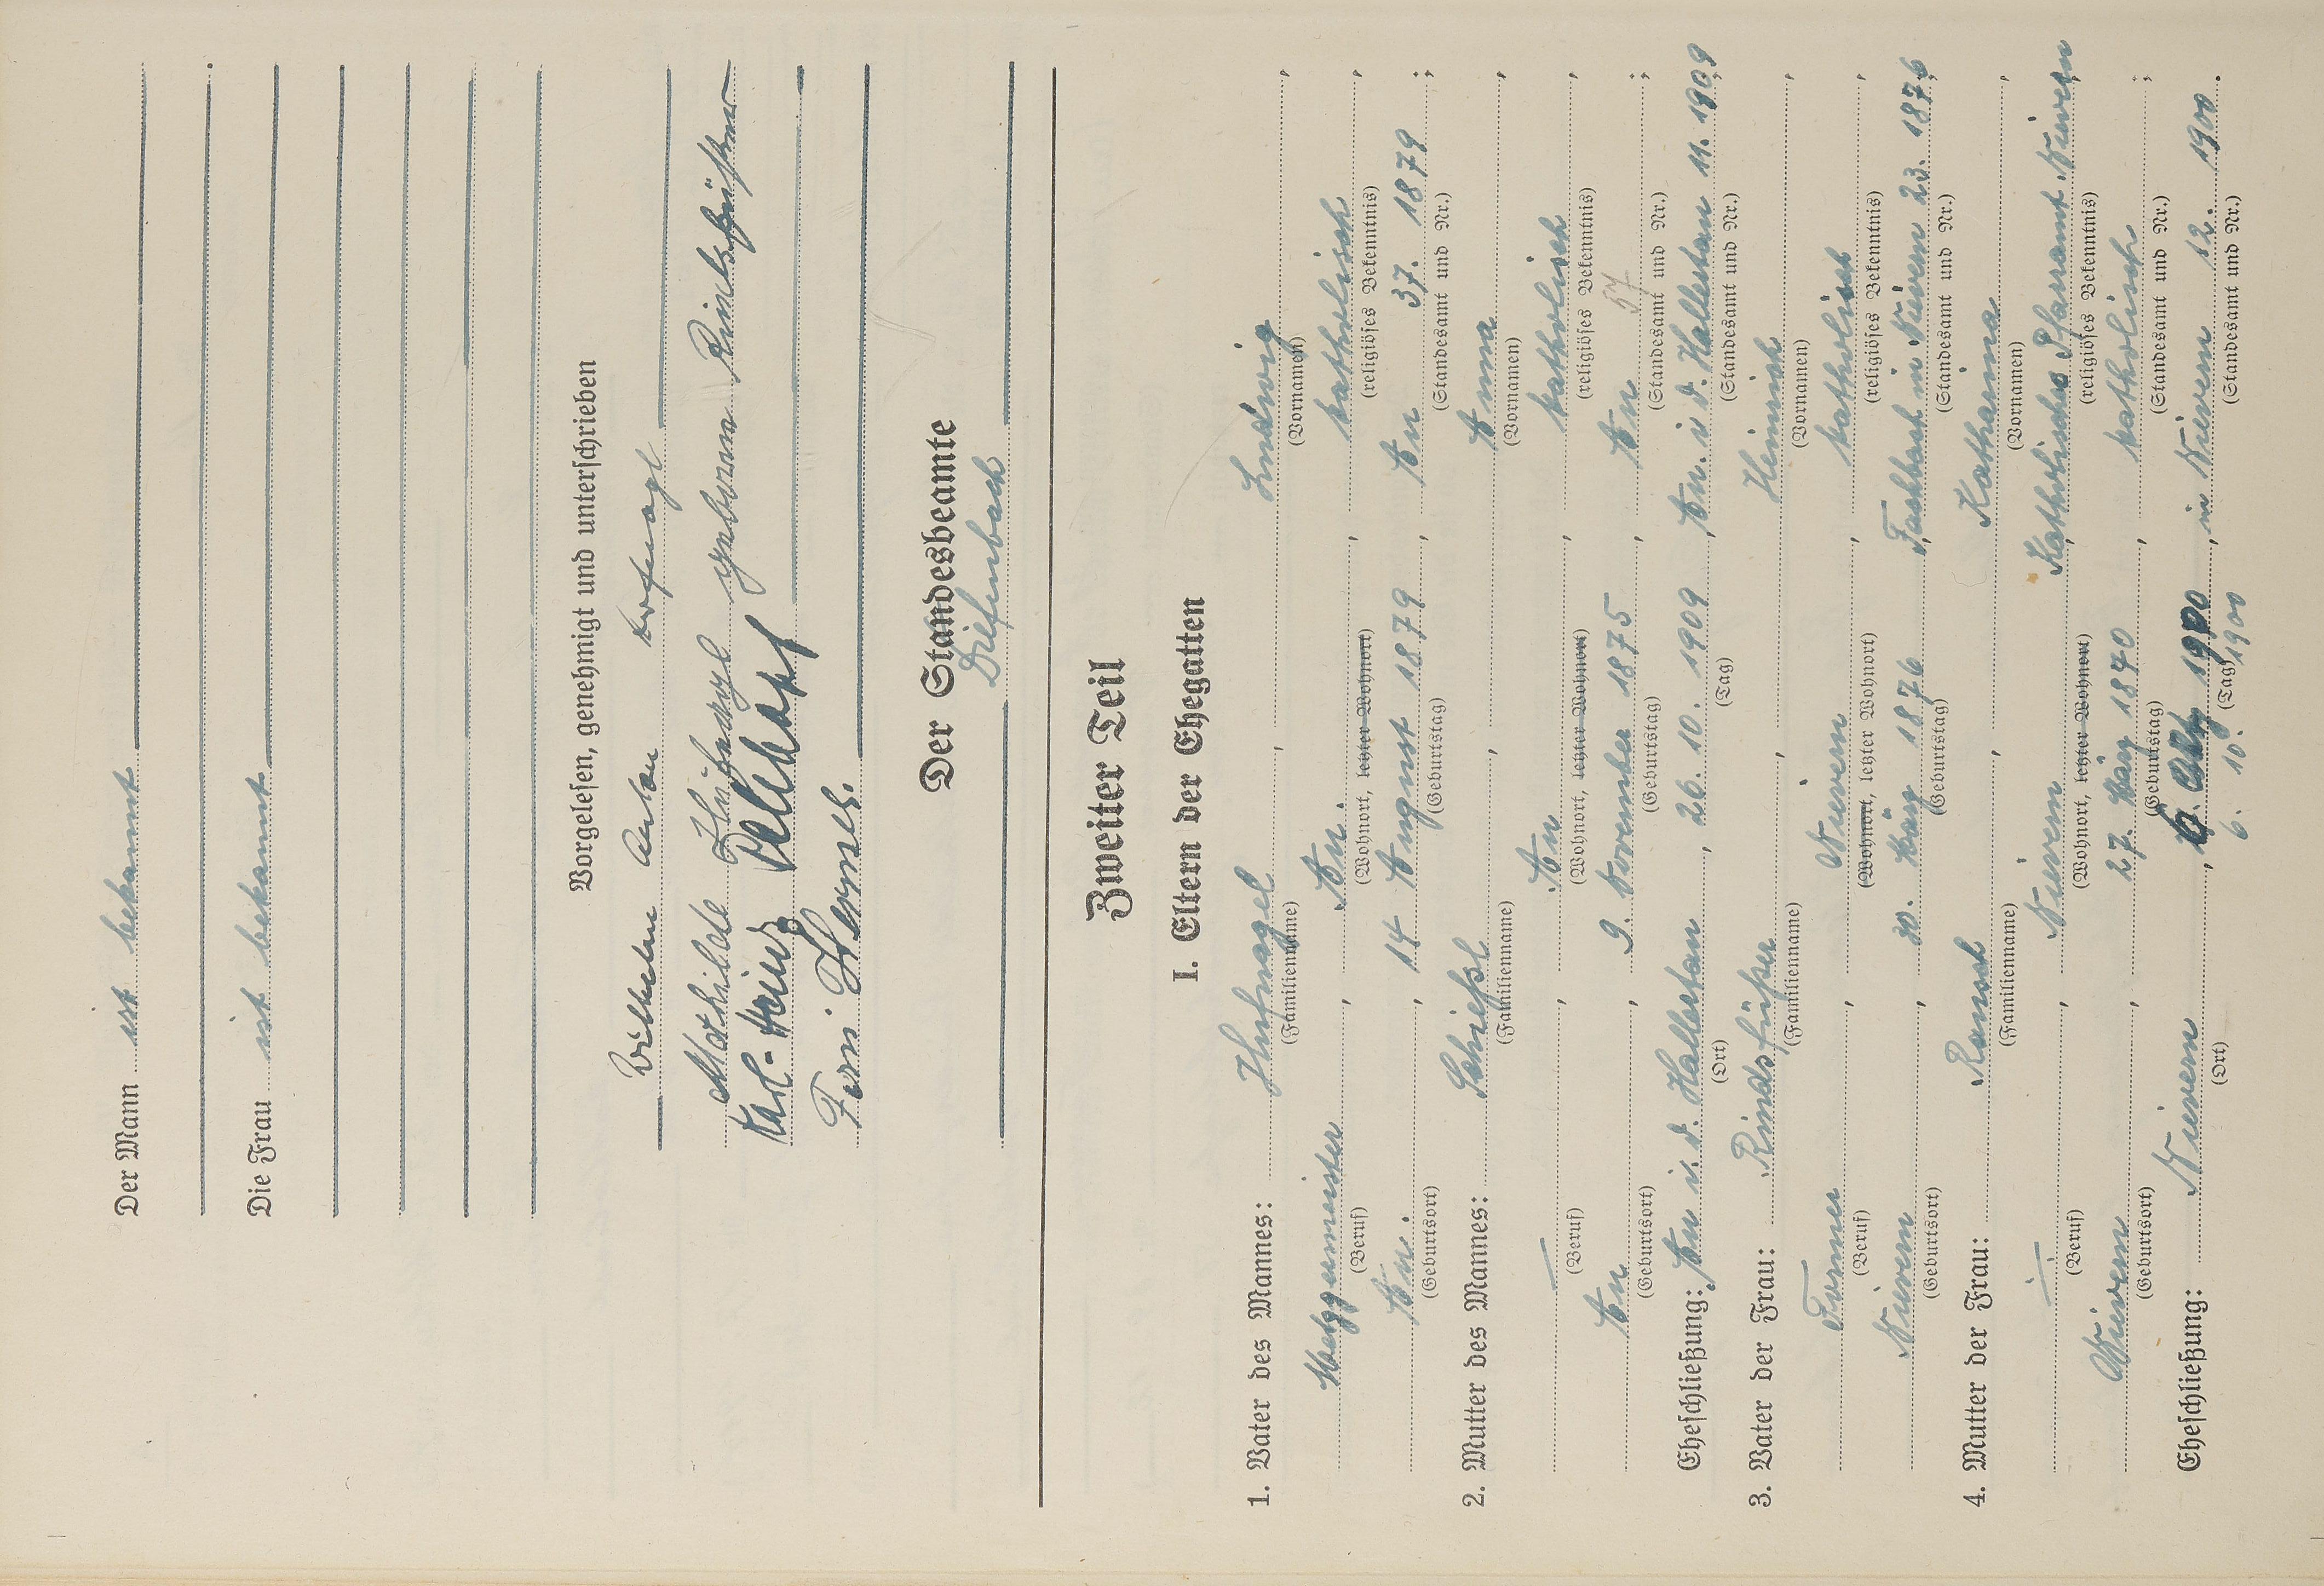 Der Mann ist bekannt
Die Frau ist bekannt
Vorgelesen, genehmigt und unterschrieben
Wilhelm Anton Hufnagl
Mathilde Hufnagl geborene Rindsfüßer
Karl-Heinz
Toni Hermes.
Der Standesbeamte
Diefenbach
Zweiter Teil
I. Eltern der Ehegatten
1. Vater des Mannes: Hufnagel, Ludwig,
(Familienname) (Vornamen)
Metzgermeister, Au, katholisch,
(Beruf) (Wohnort, letzter Wohnort) (religiöses Bekenntnis)
Au, 14 August 1879, Au 37. 1879;
(Geburtsort) (Geburtstag) (Standesamt und Nr.)
2. Mutter des Mannes: Schießl, Anna,
(Familienname) (Vornamen)
—, Au, katholisch,
(Beruf) (Wohnort, letzter Wohnort) (religiöses Bekenntnis)
Au, 9. November 1875, Au 57;
(Geburtsort) (Geburtstag) (Standesamt und Nr.)
Eheschließung: Au i. d. Hallertau, 26. 10. 1909, Au. i. d. Hallertau 11. 1909,
(Ort) (Tag) (Standesamt und Nr.)
3. Vater der Frau: Rindsfüßer, Heinrich,
(Familienname) (Vornamen)
Former, Nievern, katholisch,
(Beruf) (Wohnort, letzter Wohnort) (religiöses Bekenntnis)
Nievern, 30. März 1876, Fachbach in Nievern 23. 1876;
(Geburtsort) (Geburtstag) (Standesamt und Nr.)
4. Mutter der Frau: Katharina,
(Familienname) (Vornamen)
—, Nievern, Katholisches Pfarramt. Nievern,
(Beruf) (Wohnort, letzter Wohnort) (religiöses Bekenntnis)
Nievern, 27. März 1870, katholisch;
(Geburtsort) (Geburtstag) (Standesamt und Nr.)
Eheschließung: Nievern, 6. 1900, in Nievern 12. 1900.
(Ort) (Tag) (Standesamt und Nr.)
6. 10. 1900